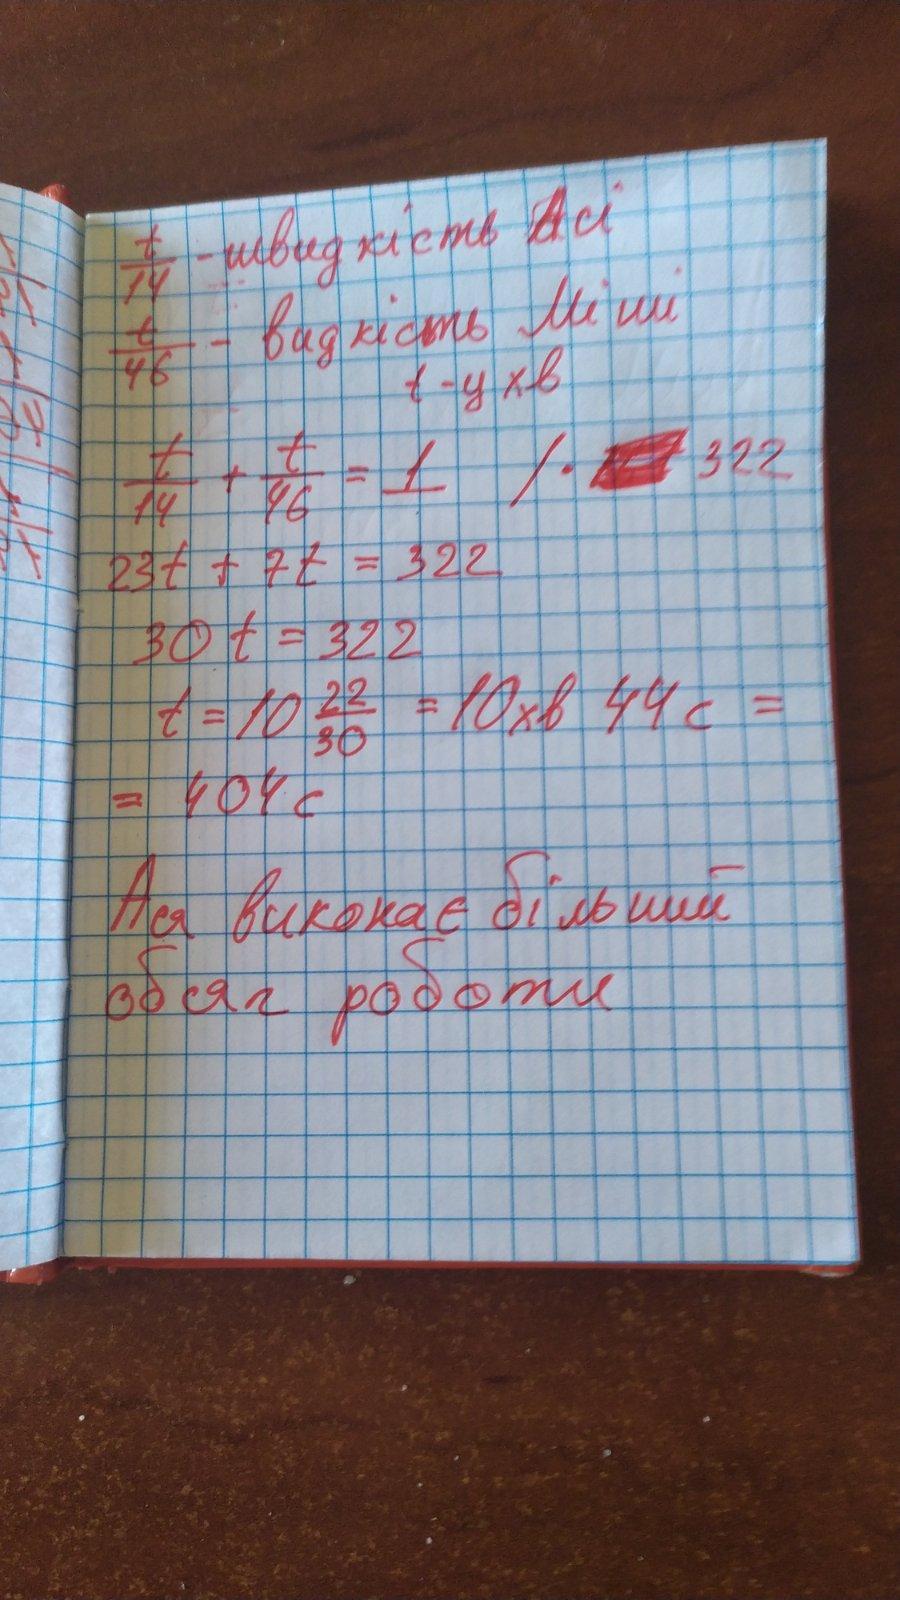 t/14 - швидкість Асі
t/46 - видкість Міші
t - у хв
t/14 + t/46 = 1 /· 322
23t + 7t = 322
30t = 322
t = 10 22/30 = 10хв 44с =
= 404с
Ася виконає більший
обсяг роботи